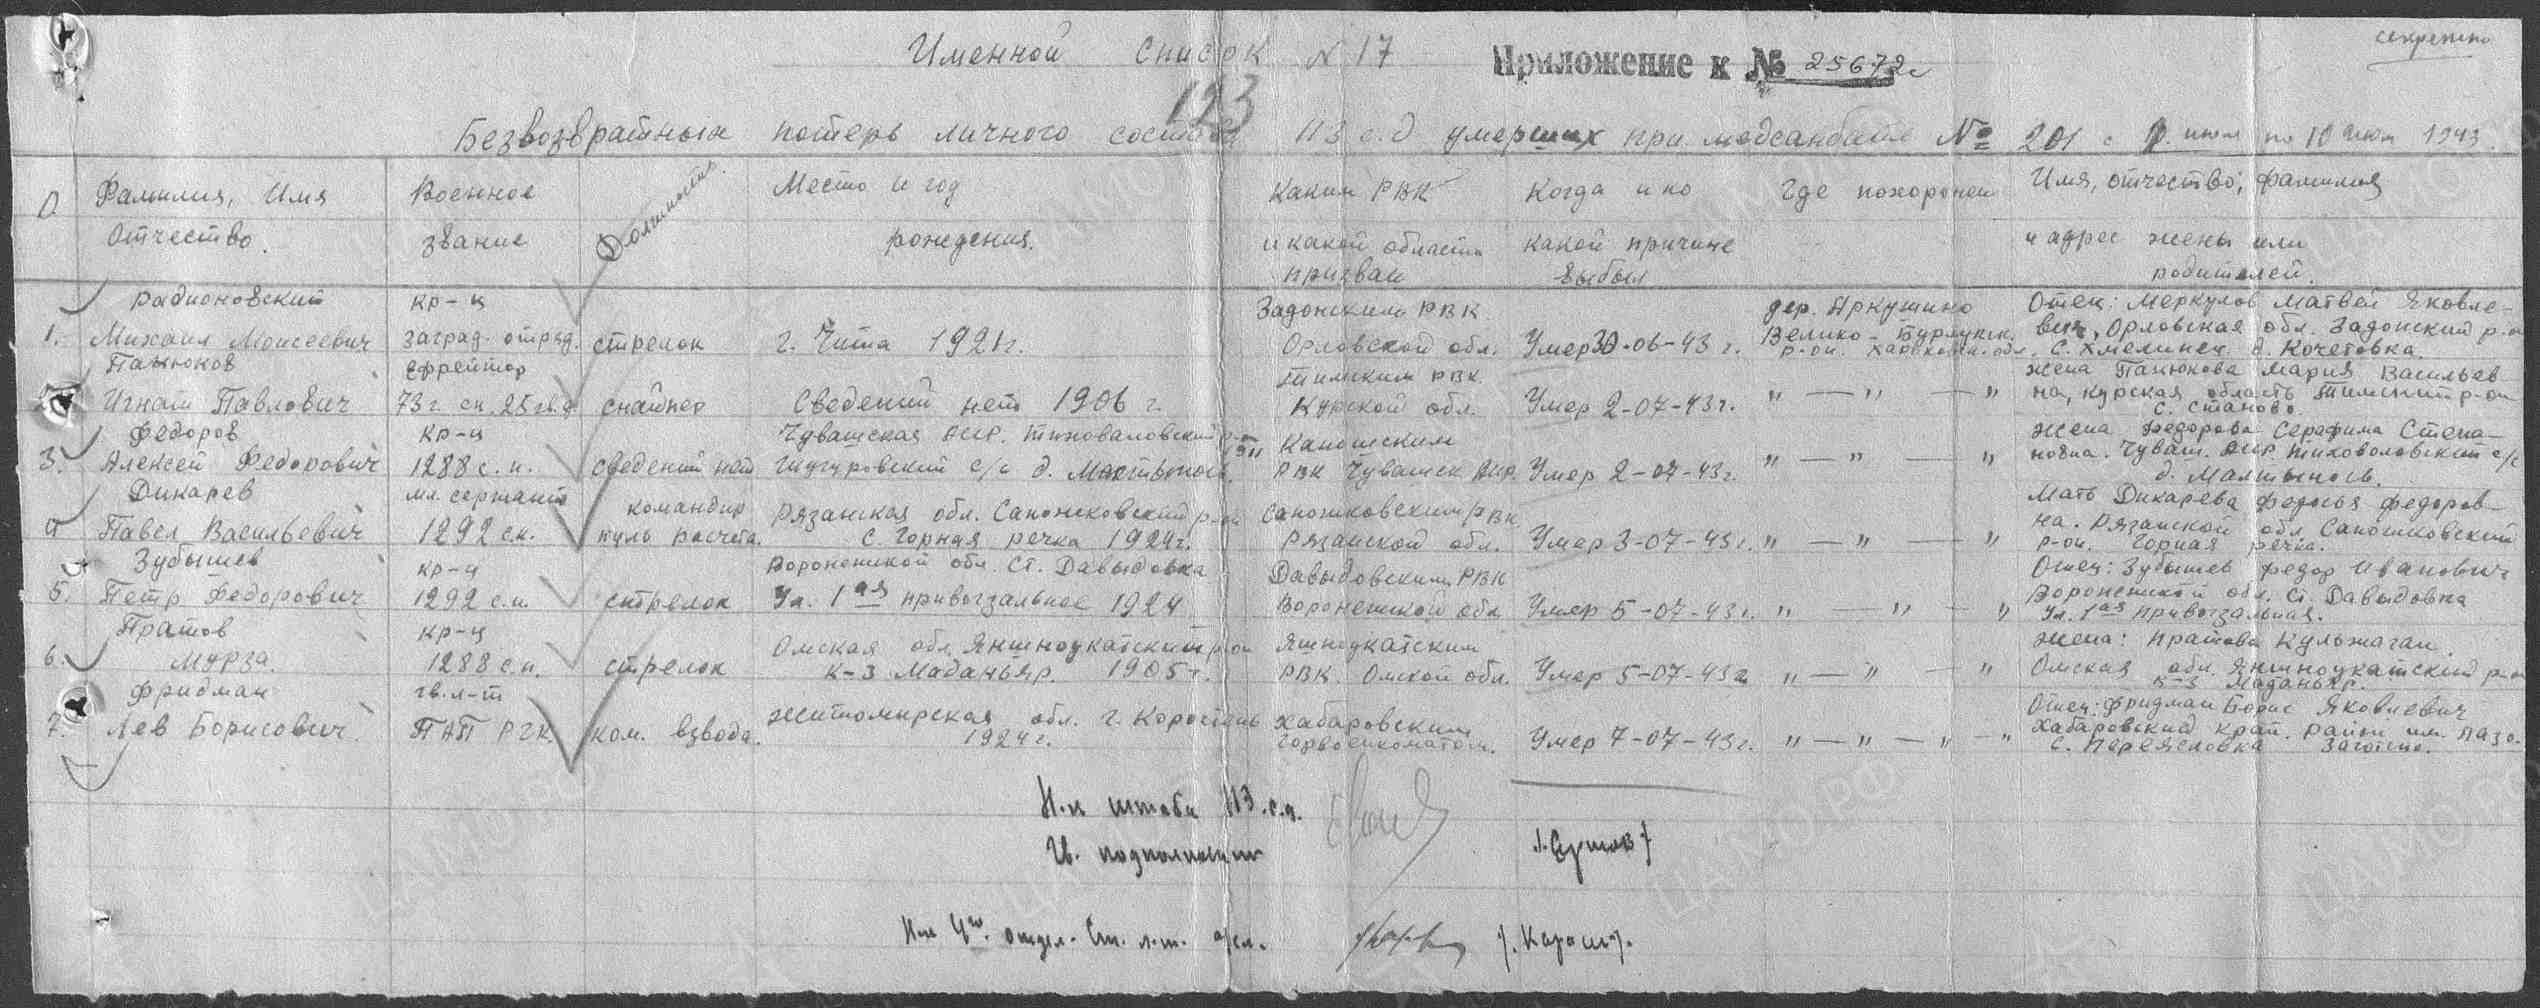 секретно
Именной Список N 17
Приложение к № 25672с
123
Безвозвратных потерь личного состава 113 с.д умерших при медсанбате № 201 с июля по 10 июля 1943
Фамилия, Имя Отчество.
Военное звание
Должность.
Место и год рождения.
Каким РВК и какой области призван
Когда и по какой причине выбыл
Где похоронен
Имя, отчество, фамилия и адрес жены или родителей.
1. Радионовский Михаил Моисеевич
кр-ц заград. отряд.
стрелок
г. Чита 1921г.
Задонским РВК. Орловской обл.
Умер 30-06-43 г.
дер. Аркушино Велико-Бурлукск. р-он. Харьковск. обл.
Отец: Меркулов Матвей Яковлевич, Орловская обл. Задонский р-н с. Хмелинец. д. Кочетовка.
Панюков Игнат Павлович
Ефрейтор 73 г. сп. 25 гв.д
снайпер
Сведений нет 1906 г.
Тимским РВК. Курской обл.
Умер 2-07-43г.
" — " — "
жена Панюкова Мария Васильевна, Курская область Тимский р-он с. Становое.
3. Федоров Алексей Федорович
кр-ц 1288 с.п.
сведений нет
Чувашская АССР.
Канашским РВК Чувашск АССР.
Умер 2-07-43г.
" — " — "
жена Федорова Серафима Степановна. Чуваш. АССР
4 Дикарев Павел Васильевич
мл. сержант 1292 с.п.
командир пуль расчета.
Рязанская обл. Сапожковский р-он с. Горная речка 1924г.
Сапожковским РВК Рязанской обл.
Умер 3-07-43г.
" — " — "
Мать Дикарева Федосья Федоровна. Рязанской обл Сапожковский р-он. Горная речка.
5. Зубышев Петр Федорович
кр-ц 1292 с.п.
стрелок
Воронежской обл. ст. Давыдовка Ул. 1ая привокзальное 1924
Давыдовским РВК Воронежской обл
Умер 5-07-43г.
" — " — "
Отец: Зубышев Федор Иванович Воронежской обл. ст. Давыдовка Ул. 1ая Привокзальная.
6. Пратов Мурза.
кр-ц 1288 с.п.
стрелок
Омская обл. р-он к-з Маданьяр. 1905г.
РВК. Омской обл.
Умер 5-07-43г
" — " — "
жена: Пратова Кульжаган. Омская обл. р-он к-з Маданьяр.
7. Фридман Лев Борисович
гв. л-т ПАП РГК.
ком. взвода.
Житомирская обл. г. Коростень 1924г.
Хабаровским горвоенкоматом.
Умер 7-07-43г.
" — " — " — "
Отец: Фридман Борис Яковлевич Хабаровский край. район им. Лазо. с. Переясловка
Н-к штаба 113.с.д.
Гв. подполковник
Н-к 4го. отдел. Ст. л-т. а/сл.
ЦАМО.РФ